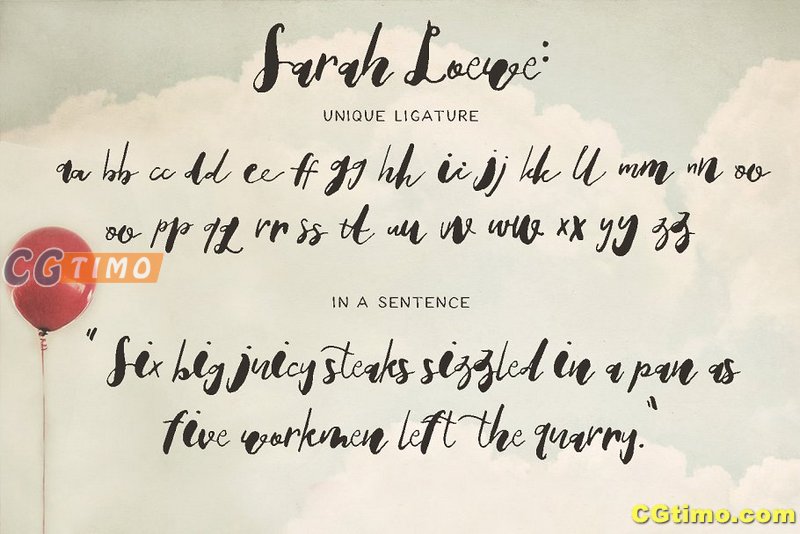 Sarah Loewe:
UNIQUE LIGATURE
aa bb cc dd ee ff gg hh ii jj kk ll mm nn oo
oo pp qq rr ss tt uu vv ww xx yy zz
CGTIMO
IN A SENTENCE
"Six big juicy steaks sizzled in a pan as
five workmen left the quarry."
CGtimo.com